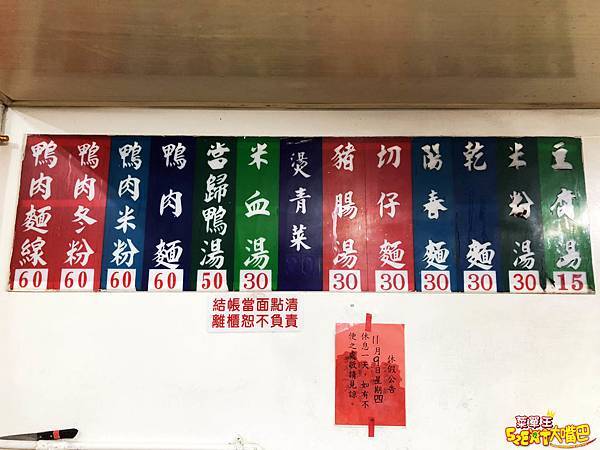 鴨肉麵線 60
鴨肉冬粉 60
鴨肉米粉 60
鴨肉麵 60
當歸鴨湯 50
米血湯 30
燙青菜
豬腸湯 30
切仔麵 30
陽春麵 30
乾麵 30
米粉湯 30
豆腐湯 15
結帳當面點清
離櫃恕不負責
休假公告
11月9日星期四
休息一天,如有不
便之處敬請見諒。
菜單王
大嘴巴